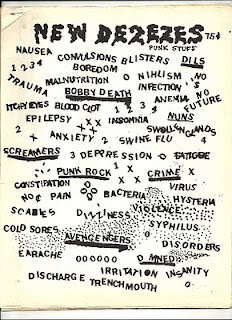 NEW DEZEZES 75¢
PUNK STUFF
NAUSEA
CONVULSIONS BLISTERS DILS
1 2 3 4 BOREDOM
TRAUMA MALNUTRITION 0 NIHLISM NO
BOBBY DEATH INFECTION NO
ITCHY EYES BLOOD CLOT 1 2 3 4 ANEMIA FUTURE
EPILEPSY X X X INSOMNIA NUNS
2 X ANXIETY 2 SWINE FLU SWOLLEN GLANDS 4
SCREAMERS 3 DEPRESSION 0 FATIGUE
PUNK ROCK X CRIME X
CONSTIPATION VIRUS
NO ¢ PAIN BACTERIA HYSTERIA
SCABIES DIZZINESS VIOLENCE
COLD SORES SYPHILUS
AVENGERS 0 DISORDERS
EARACHE 000000 DAMNED
IRRITATION INSANITY
DISCHARGE TRENCHMOUTH 0